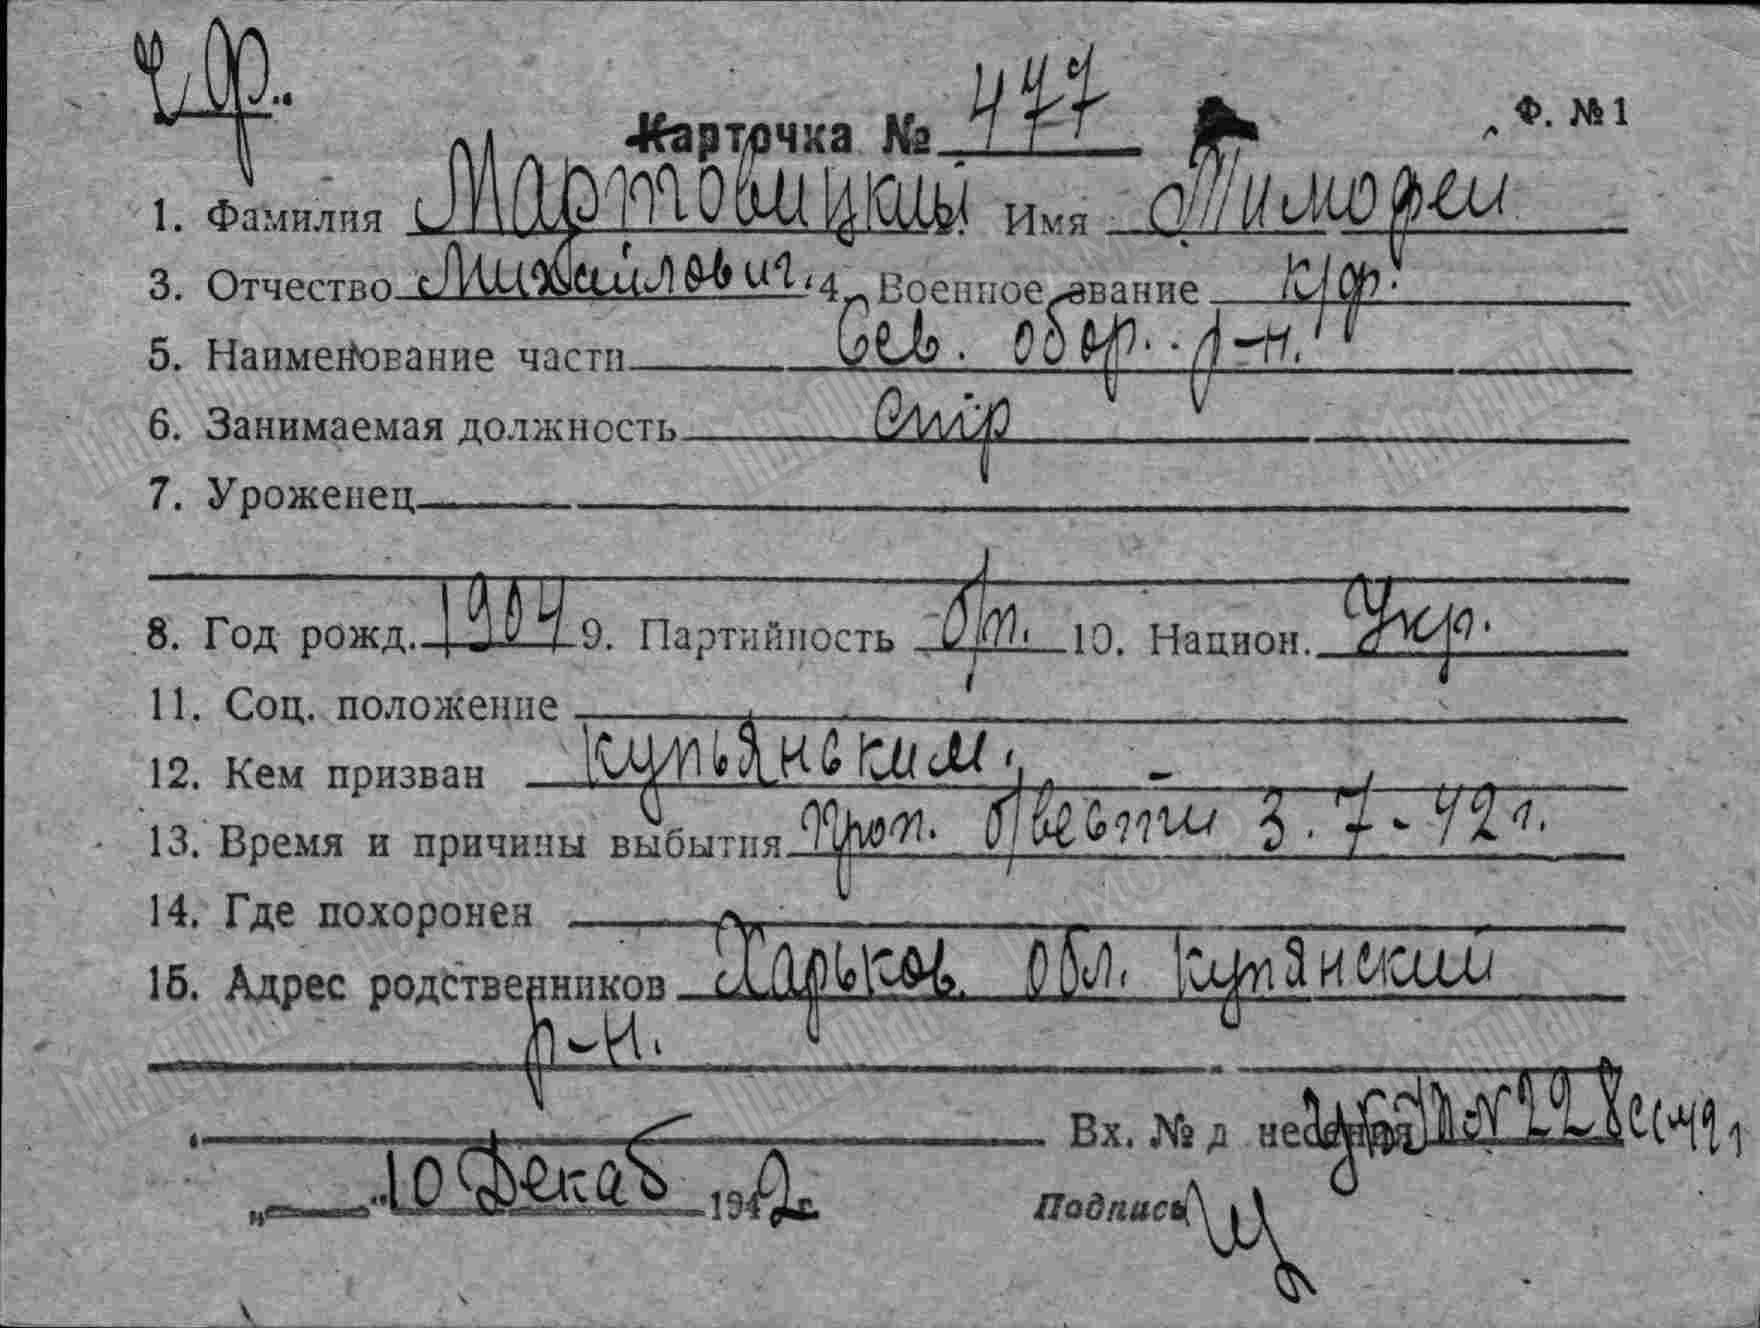 Карточка № 477 Ф. № 1
1. Фамилия Мартовицкий Имя Тимофей
3. Отчество Михайлович. 4. Военное звание к/фр.
5. Наименование части Сев. обор. р-н.
6. Занимаемая должность Стр
7. Уроженец
8. Год рожд. 1904 9. Партийность б/п. 10. Национ. Укр.
11. Соц. положение
12. Кем призван Купьянским.
13. Время и причины выбытия Проп. б/вести 3.7-42 г.
14. Где похоронен
15. Адрес родственников Харьков. обл. Купянский
р-н.
Вх. № д несения
„ 10 Декаб 1942 г.
Подпись